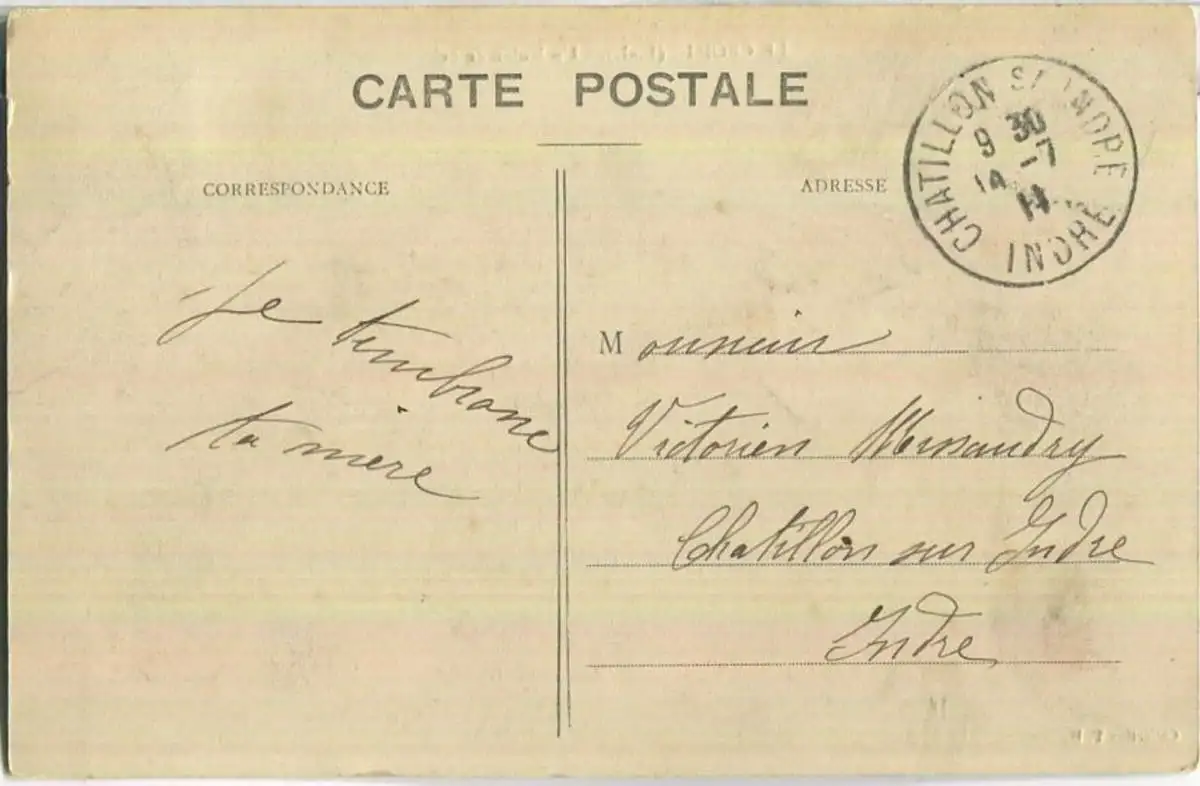 CARTE POSTALE
CORRESPONDANCE
ADRESSE
CHATILLON S. INDRE
9 30
14 -7
11
INDRE
Je t'embrasse
ta mère
Monsieur
Victorien
Chatillon sur Indre
Indre